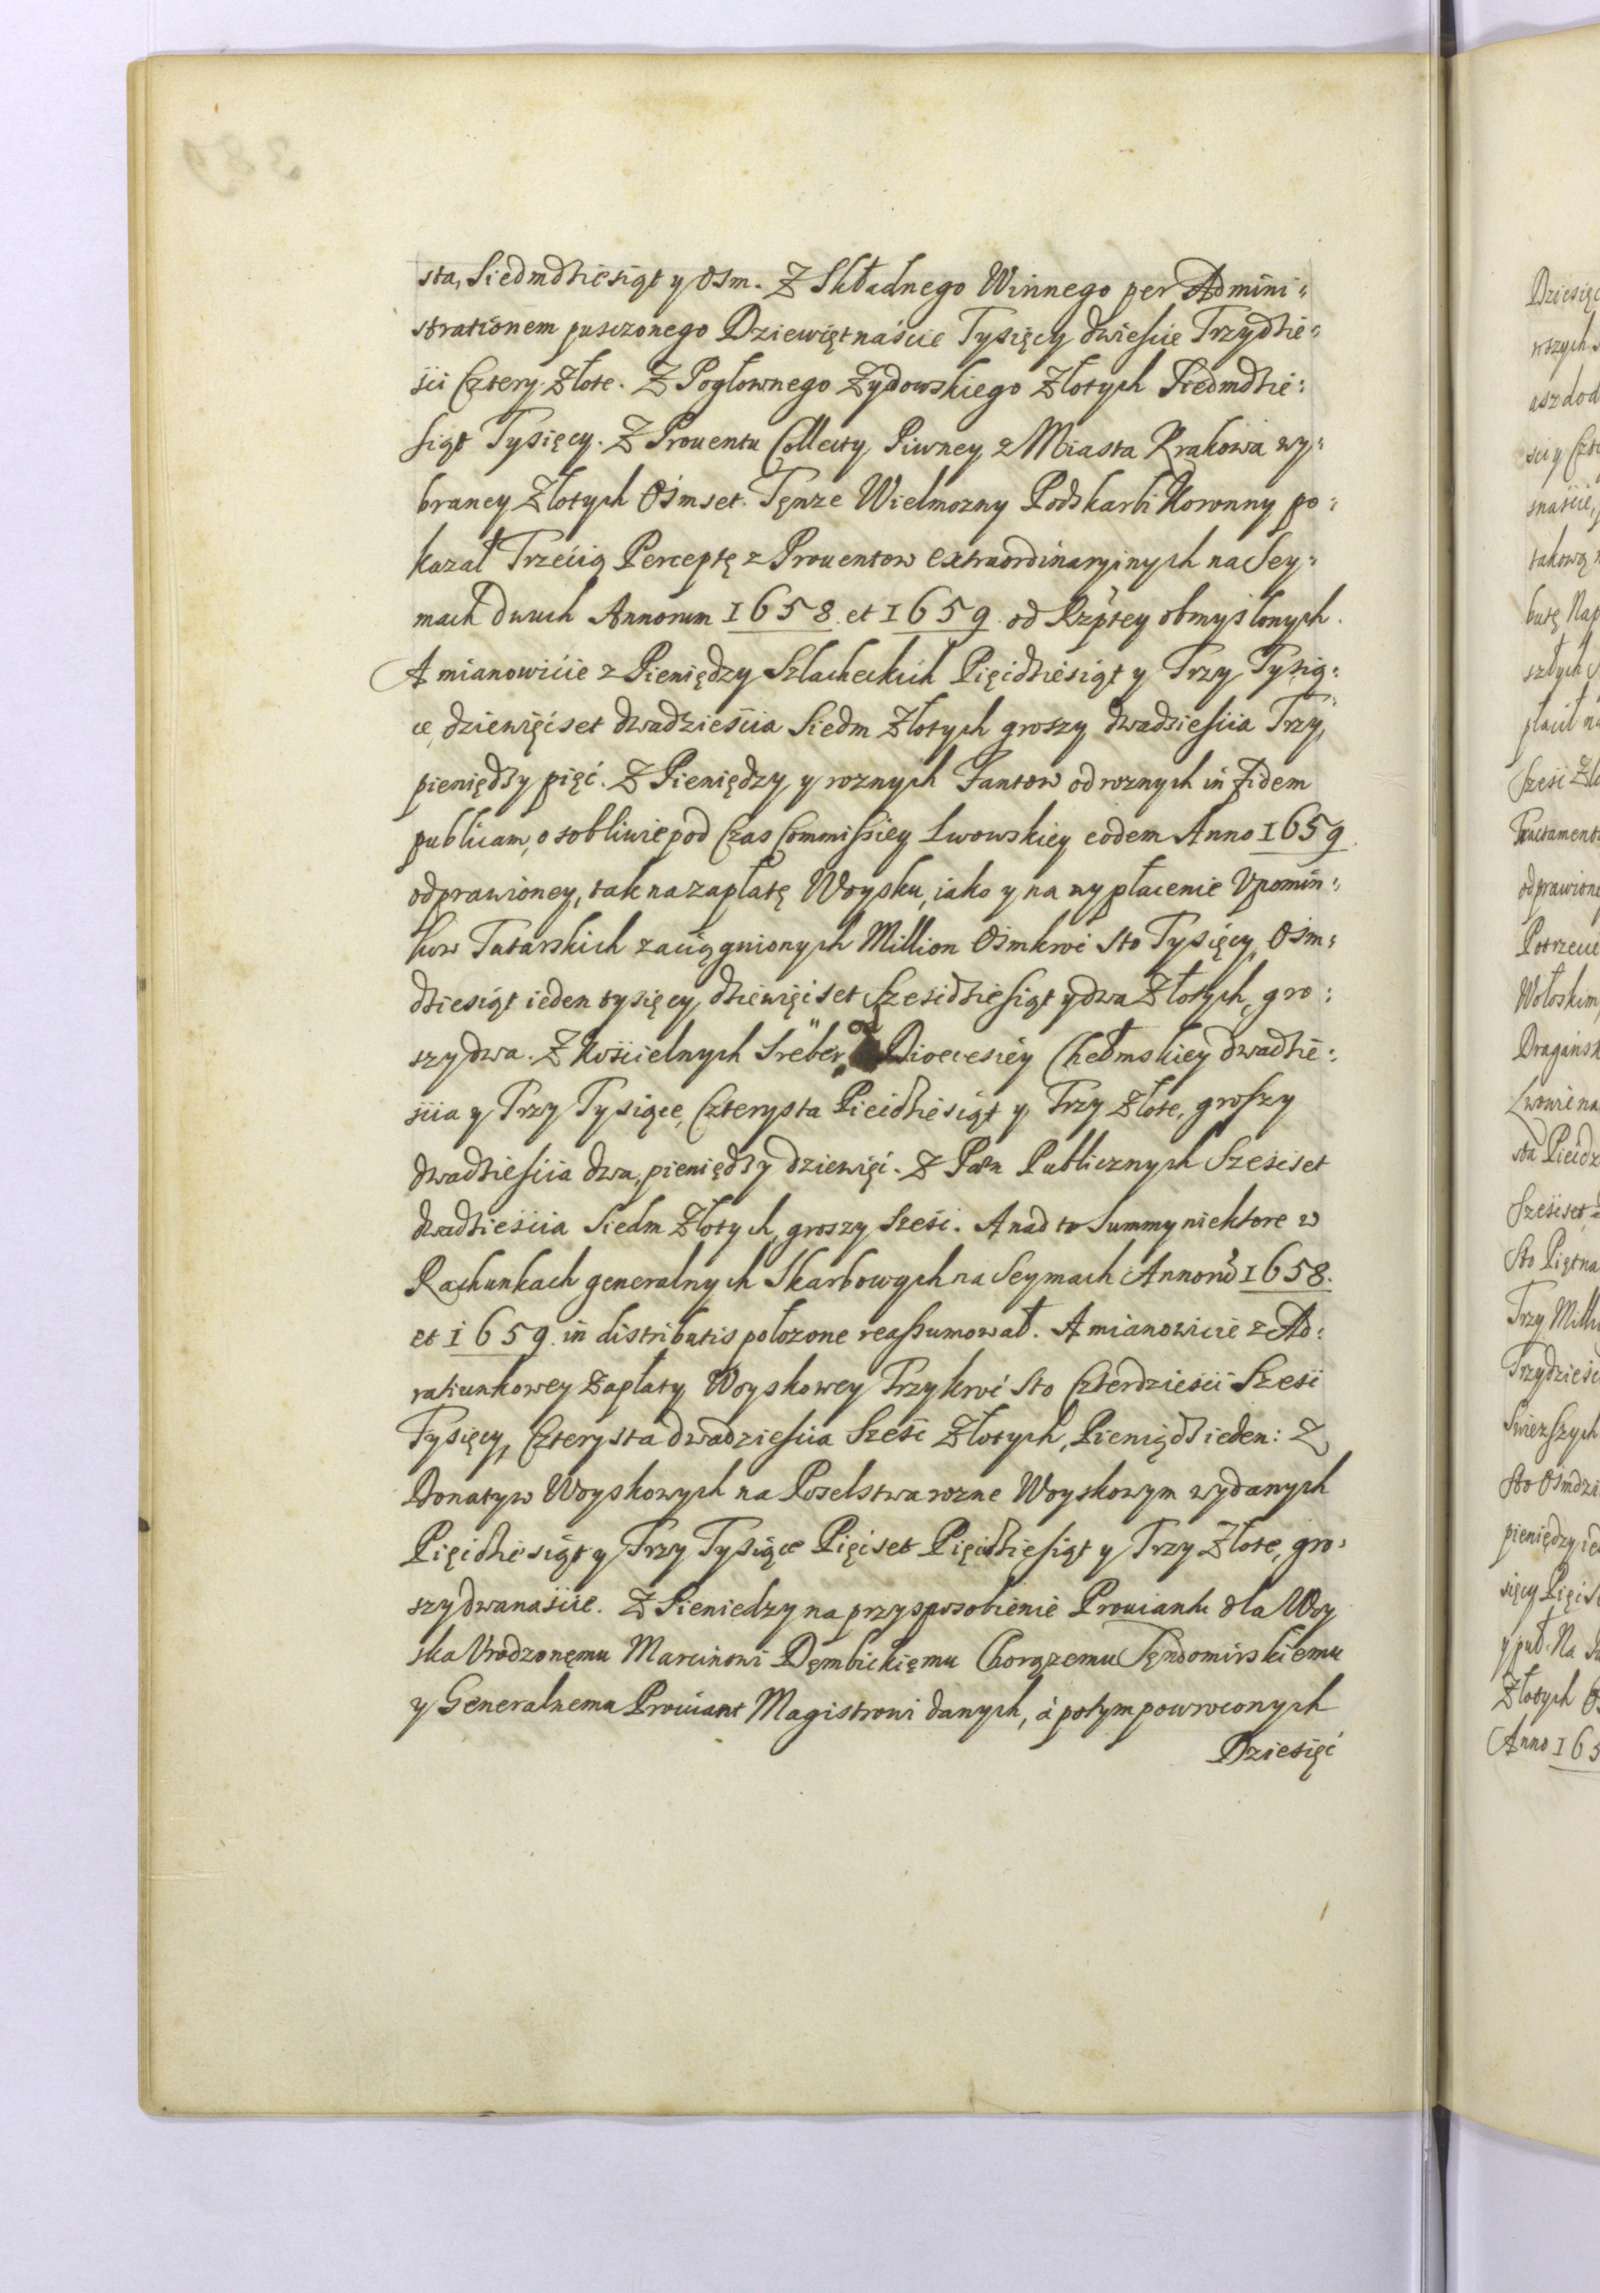 sta, Siedmdziesiąt y Osm. Z Składnego Winnego per Admini:
strationem puszczonego Dziewiętnaście Tysięcy dwieście Trzydzie:
ści Cztery Złote. Z Pogłownego Zydowskiego Złotych Siedmdzie:
siąt Tysięcy. Z Prouentu Collecty Piwney z Miasta Krakowa wy:
braney Złotych Ośmset. Tęnze Wielmozny Podskarbi Koronny po:
kazał Trzecią Perceptę z Prouentow extraordinaryinych na Sey:
mach dwuch Annorum 1658. et 1659. od Rzptey obmyslonych.
A mianowicie z Pieniędzy Szlacheckich Pięcdziesiąt y Trzy Tysią:
ce, dziewięćset dwadzieścia Siedm Złotych groszy dwadzieścia Trzy,
pieniędzy pięć. Z Pieniędzy y roznych Fantow od roznych in Fidem
publicam, osobliwie pod Czas Commissiey Lwowskiey eodem Anno 1659.
odprawioney, tak na zapłatę Woysku, iako y na wypłacenie Vpomin:
kow Tatarskich zaciągnionych Million Ośmkroć Sto Tysięcy, Ośm:
dziesiąt ieden tysięcy, dziewięćset Sześćdziesiąt y dwa Złotych, gro:
szy dwa. Z Kościelnych Sreber, od Dioecesiey Chełmskiey dwadzie:
ścia y Trzy Tysiące, Czterysta Piećdziesiąt y Trzy Złote, groszy
dwadzieścia dwa, pieniędzy dziewięć. Z Pałn Publicznych Sześćset
dwadzieścia Siedm Złotych, groszy Sześć. A nad to Summy niektore w
Rachunkach generalnych Skarbowych na Seymach Annorũ 1658.
et 1659. in distributis połozone reassumował. A mianowicie z Ad:
ratiunkowey Zapłaty Woyskowey Trzykroć Sto Czterdzieści Sześć
Tysięcy, Czterysta dwadzieścia Sześć Złotych, Pieniądz ieden: Z
Donatyw Woyskowych na Poselstwa rozne Woyskowym wydanych
Pięćdziesiąt y Trzy Tysiące Pięćset Pięćdziesiąt y Trzy Złote, gro:
szy dwanaście. Z Pieniedzy na przysposobienie Prouiantu dla Woy
ska Vrodzonęmu Marcinowi Dęmbickięmu Chorązemu Sęndomirskiemu
y Generalnemu Prouiant Magistrowi danych, á potym powroconych
Dziesięć
Dziesięc
aszdod
ści y Czte
snaście,
takową
butę Nap
szłych
płacił na
Sześć Zło
odprawione
Potrzecie
Wołoskim
Dragańsk
Lwowie na
sta Piećdz
Sześćset
Sto Piętna
Trzy Milli
Trzydzieśc
Sto Ośmdzi
pieniędzy ie
sięcy Pięćs
y puł. Na
Złotych
Anno 165